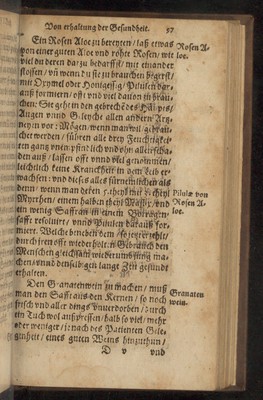 Von erhaltung der Gesundheit. 37
Ein Rosen Aloe zu bereyten / laß etwas
Rosen A-
loe.
von einer guten Aloe vnd rohte Rosen / wie
viel du deren darzu bedarffst / mit einander
stossen / vñ wenn du sie zu brauchen begerst /
mit Oxymel oder Honigessig / Pilulen dar-
auß formieren / offt vnd viel dauon zu brau-
chen: Sie geht in den gebrechē des Häupts /
Augen vnnd Gesychs allen andern Artz-
neyen vor: Mögen / wenn man wil / gebrau-
chet werden / führen alle drey Feuchtigkei-
ten gantz vnempfindlich vnd ohn
den auß / lassen offt vnnd viel genommen /
leichtlich keine Kranckheit in dem Leib er-
wachsen: vnd dieses alles fürnemlich als
denn / wenn man deren
Pilulæ von
Rosen A-
loe.
Myrrhen / einem halben theyl Mastix / vnd
ein wenig Saffran in einem
safft resoluirt / vnnd Pilulen darauß for-
miere. Welche beneben dem /
durch jren offt wiederholten Gebrauch den
Menschen gleichsam wiederumb jung ma-
chen / vnnd denselbigen lange Zeit gesundt
erhalten.
Den Granatenwein zu machen / muß
Granaten
wein.
man den Safft auß den Kernen / so noch
frisch vnd aller dings vnuerdorben / durch
ein Tuch wol außpressen / halb so viel / mehr
oder weniger / je nach des Patienten Gele-
genheit / eines guten Weins hinzuthun /
D v vnd